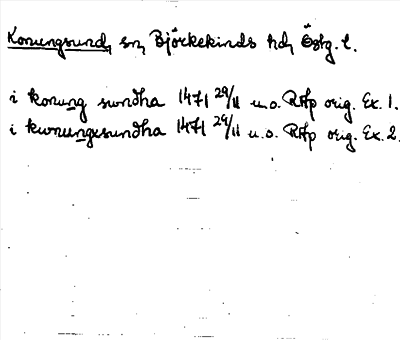 Konungsund, sn, Björkekinds hd, Östg. l.
i konung sundha 1471 29/11 u.o. RAp orig. Ex. 1.
i kwnungesundha 1471 29/11 u.o. RAp orig. Ex. 2.